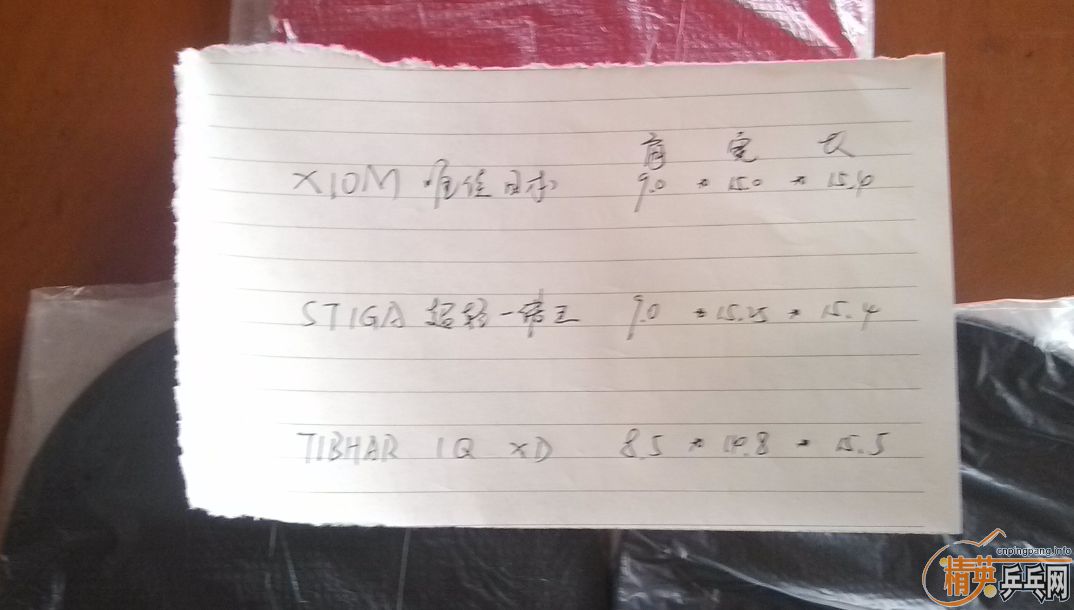 肩 宽 长
XIOM 唯佳日本 9.0 * 15.0 * 15.4
STIGA 超轻一帝王 9.0 * 15.25 * 15.4
TIBHAR 1Q XD 8.5 * 14.8 * 15.5
cnpingpang.info
精英乒乓网